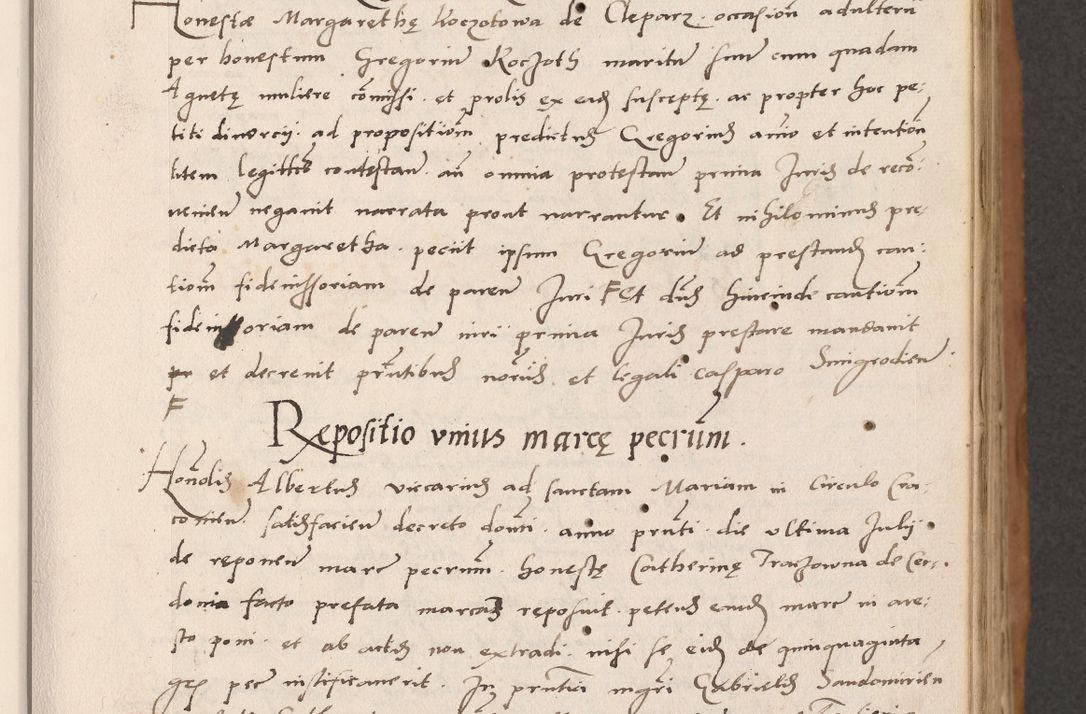 Honestæ Margarethę Koczotowa de Cleparz . occasion̄ adulterii
per honestum Gregoriū Koczoth maritū suū cum quadam
Agnetę muliere cōmissi . et prolis ex eadē susceptę . ac propter hoc pe-
titi divorcii . ad propositiom̄ predictus Gregorius animo et intention̄
litem legittīe contestan̄ . an̄ omnia protestan̄ prima Iuris de recō-
venien̄ negavit narrata prout narrantur . Et nihilominus pre-
dicta Margaretha . peciit ipsum Gregoriū ad prestandā cau-
tiom̄ fideiussoriam de paren̄ Iuri F Et dūs hincinde cautiom̄
fideiussoriam de paren̄ iurii prima Iuris prestare mandavit
et decrevit prn̄tibus notariis et legali Casparo Smigrodien̄ .
F
Repositio unius marcę pecrūm .
Honōlis Albertus vicarius ad sanctam Mariam in Circulo Cra-
covien̄ . satisfacien̄ decreto domī . anno prn̄ti . die ultima Julii
de reponen̄ marc pecrūm . honestę Catherinę Traczowna de Cer-
donia facto prefata marcam reposuit . petens eandē marc in are-
sto poni . et ab actis non extradi . nisi se eidē de quinquaginta
gros pec iustificaverit . In prn̄tia mgr̄i Gabrielis Sandomirien